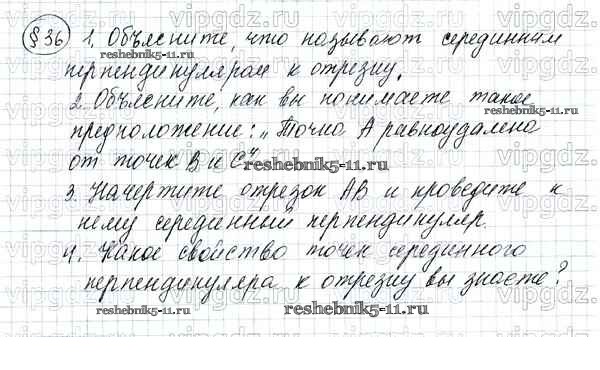 §36 1. Объясните, что называют серединным
перпендикуляром к отрезку.
2. Объясните, как вы понимаете такое
предположение: „Точка А равноудалена
от точек В и С"
3. Начертите отрезок АВ и проведите к
нему серединный перпендикуляр.
4. Какое свойство точек серединного
перпендикуляра к отрезку вы знаете?
reshebnik5-11.ru
reshebnik5-11.ru
reshebnik5-11.ru
reshebnik5-11.ru
reshebnik5-11.ru
vipgdz.